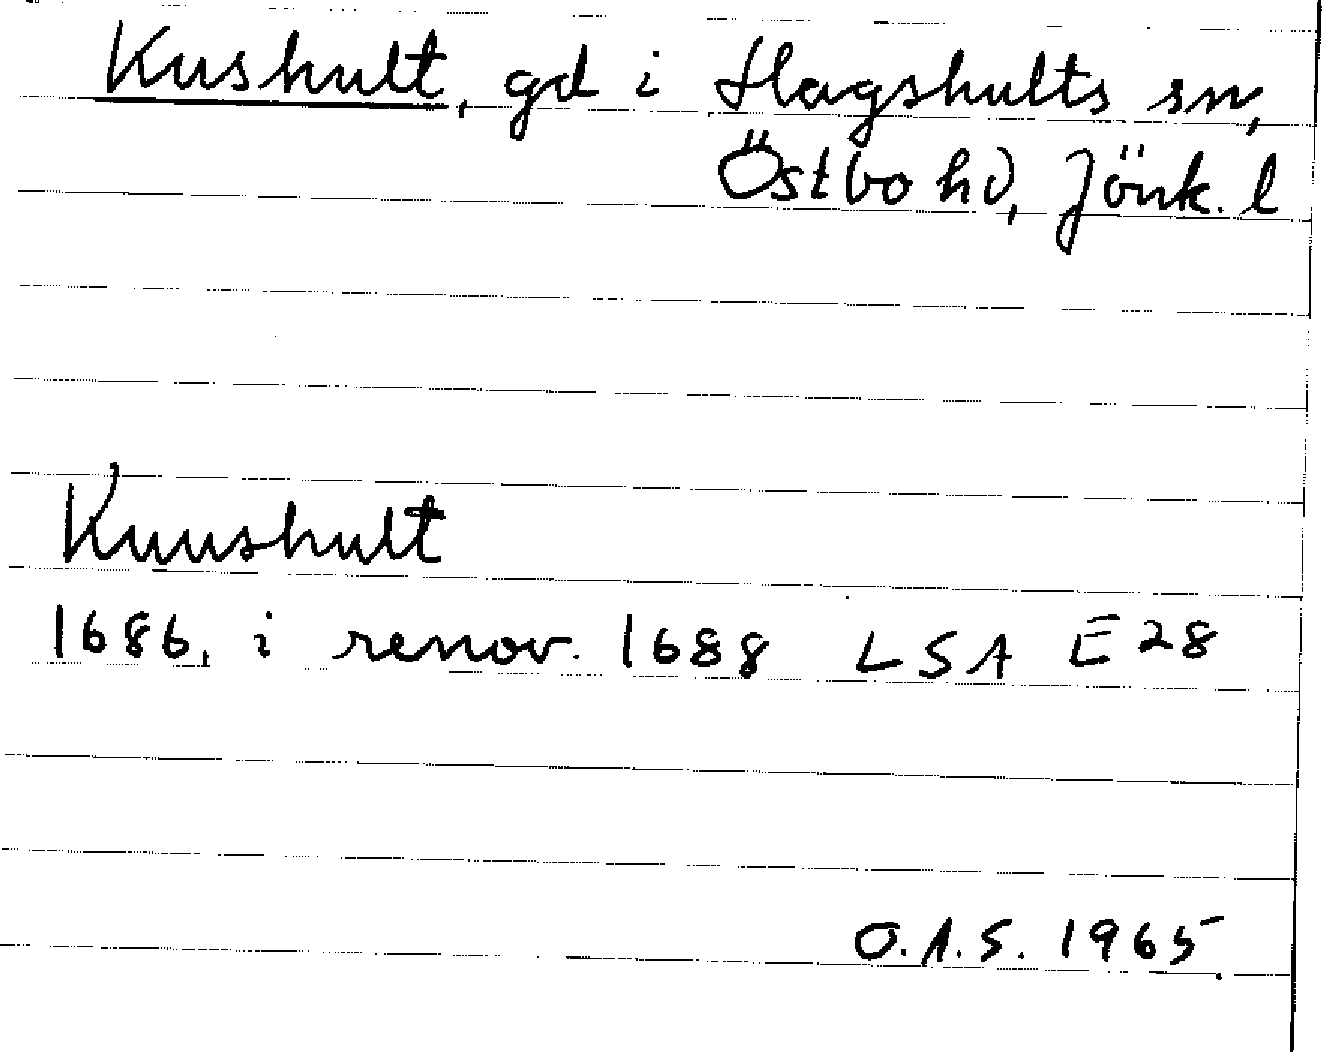 Kushult, gd i Hagshults sn,
Östbo hd, Jönk. l
Kuushult
1686, i renov. 1688 LSA E28
O.A.S. 1965.